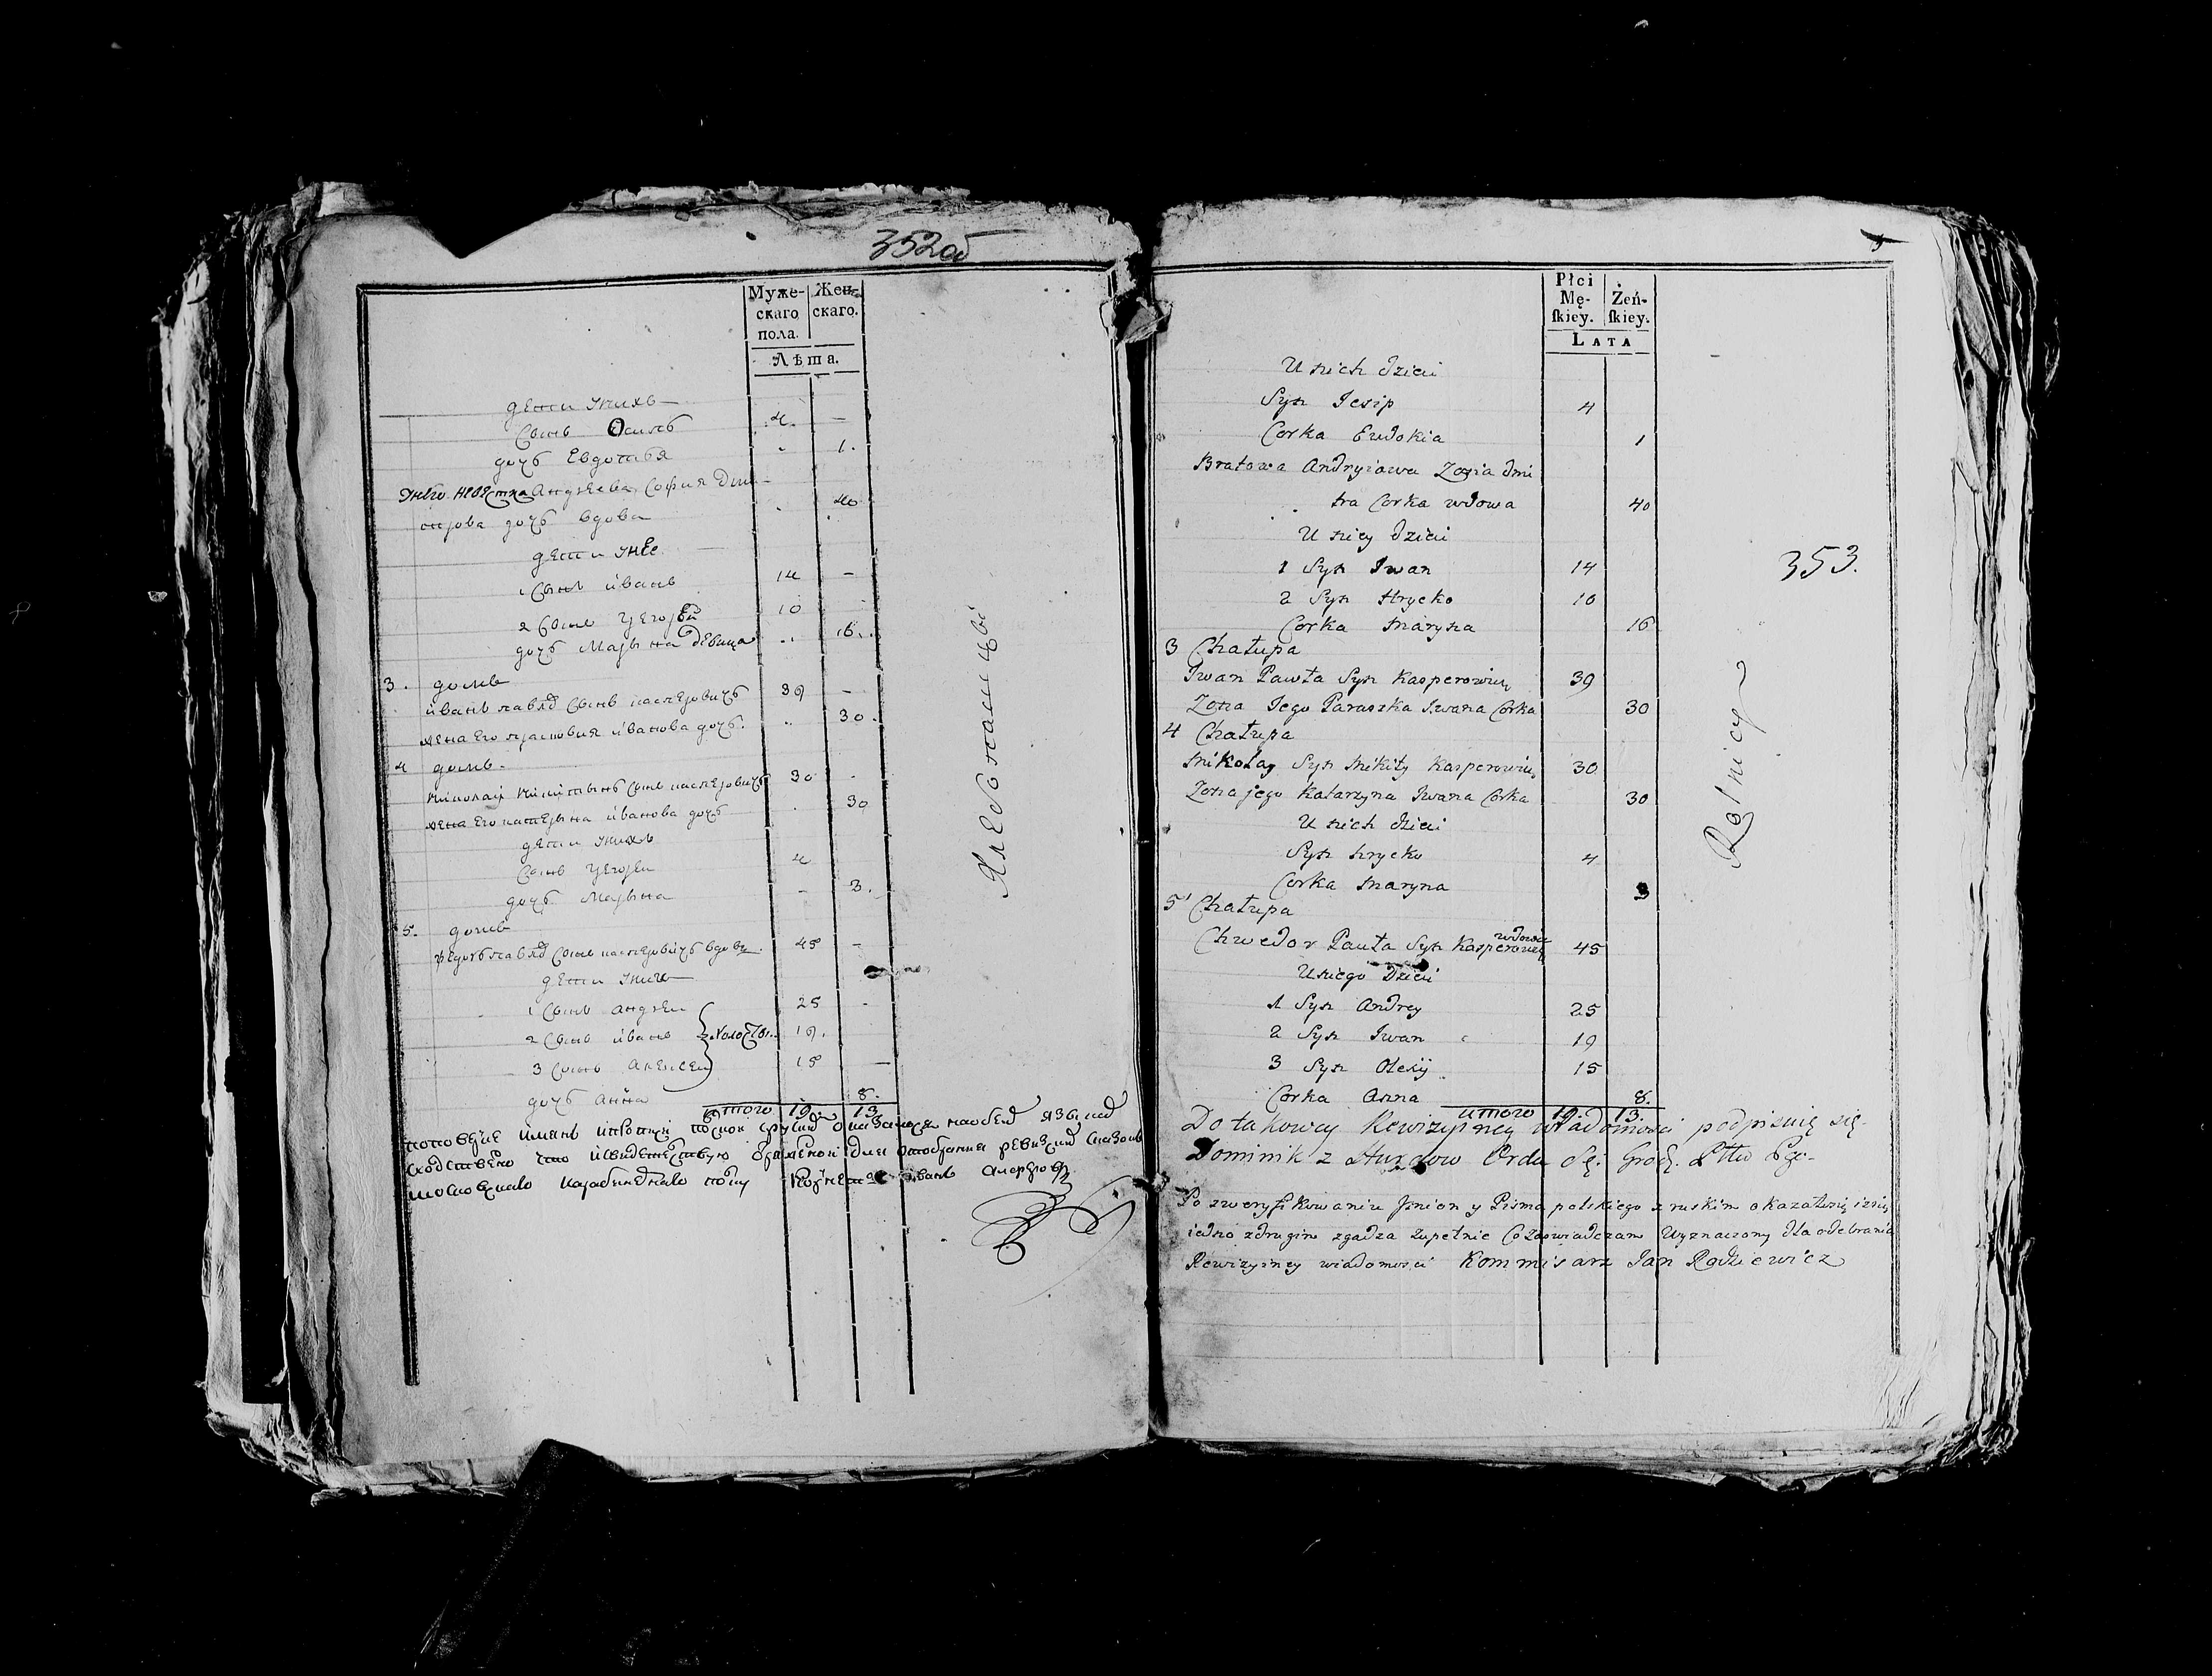 352об
Муже-
скаго
пола.
Жен-
скаго.
Лѣта.
дети унихъ
сынъ Осипъ 4 —
дочь Евдотья 1.
унего невѣстка Андреева София Дми-
трова дочь вдова 40
дети унее
1 сынъ иванъ 14 —
2 сынъ Григорей 10
дочь Марына девица 16.
3. домъ
иванъ павла сынъ касперовичъ 39 —
жена его прасковия иванова дочь. 30.
4 домъ.
николай никитынъ сынъ касперовичъ 30 -
жена его катерына иванова дочь 30
дети унихъ
сынъ Григорей 4
дочь Марына 3.
5. домъ
федоръ павла сынъ касперовичъ вдовец 45 —
дети унихъ
1 сынъ андрей 25 -
2 сынъ иванъ холосты. 19.
3 сынъ алексей 15 —
дочь анна 8.
итого 19. 13
Хлебопашцы
иванъ
Płci
Mę-
ſkiey.
Żeń-
ſkiey.
LATA
U nich dzieci
Syn Iesip 4
Corka Ewdokia 1
Bratowa Andryiowa Zosia Dmi
tra Corka wdowa 40
U niey dzieci
1 Syn Iwan 14
2 Syn Hrycko 10
Corka Maryna 16
3 Chałupa
Iwan Pawła Syn Kasperowicz 39
Zona Iego Paraszka Iwana Corka 30
4 Chałupa
Mikołay Syn Mikity Kasperowicz 30
Zona jego Katarzyna Iwana Corka 30
U nich dzieci
Syn Hrycko 4
Corka Maryna 3
5 Chałupa
Chwedor Pauła Syn Kasperowicz wdowiec 45
U niego Dzieci
1 Syn Andrey 25
2 Syn Iwan 19
3 Syn Olexiy 15
Corka Anna 8.
итого 19. 13.
353.
Rolnicy
Do takowey Rewizyiney wiadomości podpisuię się
Dominik z Hurdow Orda Sę: Grodz. Pttu Pgo-
Po zweryfikowaniu Jmion y Pisma polskiego z ruskim okazało się iż się
iedno z drugim zgadza zupełnie Co zaswiadczam Wyznaczony dla odebrania
Rewizyiney wiadomości Kommisarz Jan Rodziewicz